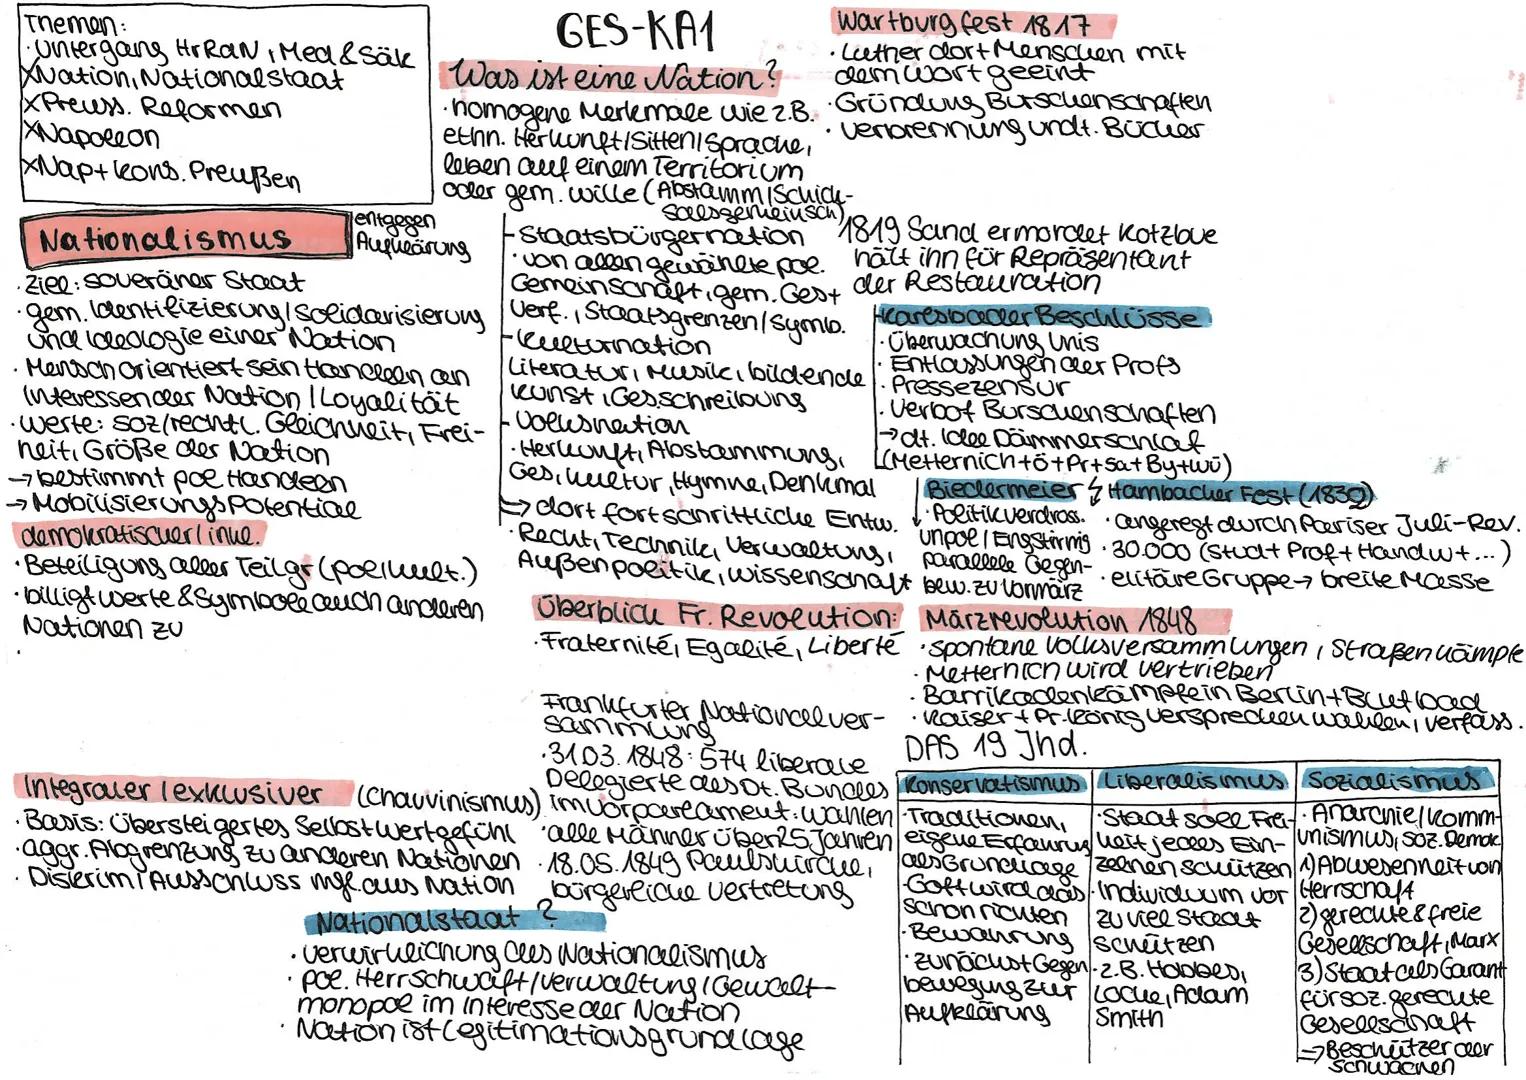 Themen:
· Untergang HrRdN, Med & Säk
XNation, Nationalstaat
XPreuss. Reformen
XNapoleon
XNap + kons. Preußen
GES-KA1
Was ist eine Nation?
· homogene Merkmale wie z.B.
ethn. Herkunft/Sitten/Sprache,
leben auf einem Territorium
oder gem. Wille (Abstamm/Schick-
salsgemeinsch)
- Staatsbürgernation
· von allen gewählte pol.
Gemeinschaft, gem. Ges+
Verf., Staatsgrenzen/Symb.
- Kulturnation
Literatur, Musik, bildende
Kunst, Ges.schreibung
- Volksnation
· Herkunft, Abstammung,
Ges, Kultur, Hymne, Denkmal
=> dort fortschrittliche Entw.
· Recht, Technik, Verwaltung,
Außenpolitik, Wissenschaft
Nationalismus
entgegen
Aufklärung
Ziel: souveräner Staat
· gem. Identifizierung/Solidarisierung
und Ideologie einer Nation
· Mensch orientiert sein Handeln an
Interessen der Nation / Loyalität
· Werte: soz/rechtl. Gleichheit, Frei-
heit, Größe der Nation
→ bestimmt pol Handeln
→ Mobilisierungspotential
demokratischer/inkl.
· Beteiligung aller Teilgr (pol/kult.)
· billigt Werte & Symbole auch anderen
Nationen zu
·
Integraler/exklusiver (Chauvinismus)
· Basis: Übersteigertes Selbstwertgefühl
· aggr. Abgrenzung zu anderen Nationen
· Diskrim/Ausschluss mgl. aus Nation
Überblick Fr. Revolution:
· Fraternité, Egalité, Liberté
Frankfurter Nationalver-
sammlung
· 31.03.1848: 574 liberale
Delegierte des Dt. Bundes
im Vorparlament: wählen
· alle Männer über 25 Jahren
· 18.05.1849 Paulskirche,
bürgerliche Vertretung
Nationalstaat ?
· Verwirklichung des Nationalismus
· pol. Herrschwaft/Verwaltung/Gewalt-
monopol im Interesse der Nation
· Nation ist Legitimationsgrundlage
Wartburgfest 1817
· Luther dort Menschen mit
dem Wort geeint
· Gründung Burschenschaften
· Verbrennung undt. Bücher
1819 Sand ermordet Kotzbue
hält ihn für Repräsentant
der Restauration
Karlsbader Beschlüsse
· Überwachung Unis
· Entlassungen der Profs
· Pressezensur
· Verbot Burschenschaften
→ dt. Idee Dämmerschlaf
(Metternich + Ö + Pr + Sa + By + Wü)
Biedermeier ↯ Hambacher Fest (1832)
· Politikverdross.
unpol/Engstirnig
parallele Gegen-
bew. zu Vormärz
· angeregt durch Pariser Juli-Rev.
· 30.000 (Stud + Prof + Handw + ...)
· elitäre Gruppe → breite Masse
Märzrevolution 1848
· spontane Volksversammlungen, Straßenkämpfe
· Metternich wird vertrieben
· Barrikadenkämpfe in Berlin + Blutbad
· Kaiser + Pr. König versprechen Wahlen, Verfass.
DAS 19 Jhd.
Konservatismus
· Traditionen,
eigene Erfahrung
als Grundlage
· Gott wird das
schon richten
· Bewahrung
· zunächst Gegen-
bewegung zur
Aufklärung
Liberalismus
· Staat soll Frei-
heit jedes Ein-
zelnen schützen
· Individuum vor
zu viel Staat
schützen
· z.B. Hobbes,
Locke, Adam
Smith
Sozialismus
· Anarchie/Komm-
unismus, soz. Demok
1) Abwesenheit von
Herrschaft
2) gerechte & freie
Gesellschaft, Marx
3) Staat als Garant
für soz. gerechte
Gesellschaft
=> Beschützer der
Schwachen